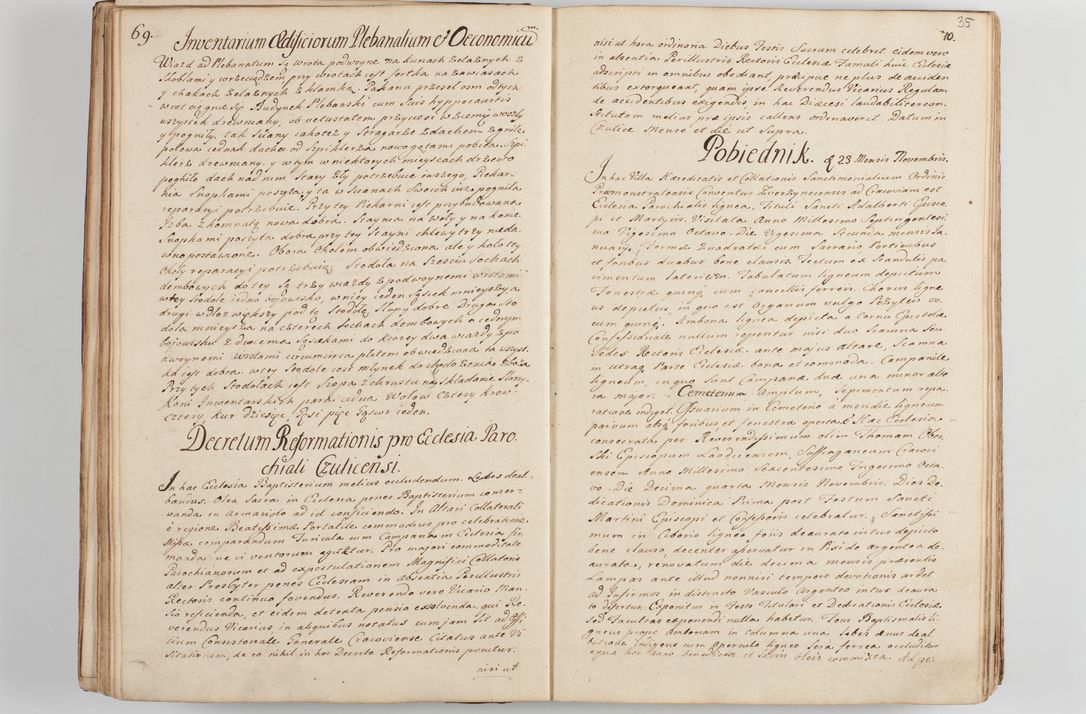 69.
Inventarium Ædificiorum Plebanalium et Oeconomicũ
Wiazd ad Plebanatum Są wrota podwoyne na kunach żelaznych z
Skoblami y wrzeciądzem przy wrotach iest fortka na zawiasach
y chakach żelaznych z klamką. Parkanu od tych
wrot Budynek Plebanski cum Suis hyppocaustis
wszystek drewniany, ob vetustatem przyciesi w ziemę weszły
y pogniły, tak sciany iakoteż y Stragarze z dachem zgniłe
połowa iednak dachu od Spichlerza nowo gątami pobita. Spi
chlerz drewniany. y w tym w niektorych mieyscach drzewo
pogniło dach nad nim Stary zły potrzebuie inszego. Piekar-
nia Snopkami poszyta, y ta w Scianach pogniła
reparacyi potrzebuie. Przy tey Piekarni iest przybudowana
Izba z komnatą nowa dobra. Staynia na Woły y na konie
Snopkami poszyta dobra przy tey Stayni chlewy trzy nieda
wno postawione. Obora Okołem obwiedziona ale y koło tey
Obory reparacyi potrzebuie. Stodoła na Szesciu Sochach
dembowych do tey Są trzy wiazdy z podwoynemi wrotami
w tey Stodole iedno boiowisko, w niey ieden Sąsiek mnieyszy a
drugi wdłoz większy pod tę Stodołę Słupy dobre Druga Sto
doła mnieysza na czterech Sochach dembowych o iednym
boiowisku z dwiema Sąsiekami do ktorey dwa wiazdy z po
dwoynemi wrotami circumcirca płotem obwiedziona ta wszyst
ka iest dobra. w tey Stodole iest młynek do chędożenia zboża
Przy tych Stodołach iest Szopa z chrustu na Składanie Słomy.
Koni Inwentarskich para iedna Wołow Cztery krow
cztery kur dziesięć Gęsi pięc Gąsior ieden.
Decretum Reformationis pro Ecclesia Paro.
chiali Czulicensi.
In hac Ecclesia Baptisterium melius occludendum. Lochos deal
bandus. Olea Sacra in Ecclesia penes Baptisterium conser-
vanda in Armariolo ad id conficiendo. In Altari Collaterali
è regione Beatissimæ Portatile commodius pro celebratione
Missæ comparandum Turicula cum Campana in Ecclesia fir
manda ne vi ventorum agitetur. Pro majori commoditate
Parochianorum et ad expostulationem Magnifici Collatoris
alter Presbyter penes Ecclesiam in absentia Perillustris
Rectoris continuo fovendus. Reverendo vero Vicario Man-
sio reficienda, et eidem detenta pensio exsolvenda, qui Re-
verendus Vicarius, in aliquibus notatus cum jam Sit ad Offi
cium Consistoriale Generale Cracoviense Citatus ante Vi
sitationem, de eo nihil in hoc Decreto Reformationis ponitur.
nisi ut
35
70.
nisi ut hora ordinaria Diebus Festis Sacrum celebret eidem vero
in absentia Perillustris Rectoris Ecclesiæ Famuli huic Ecclesiæ
adscripti in omnibus obediant, præcipue ne plus de acciden
tibus extorqueant, quam ipse Reverendus Vicarius Regulam
de accidentibus exigendis, in hac Diæcesi laudabiliter con-
stitutam melius præ ipsis callens ordinaverit Datum in
Czulice Mense et die ut Supra.
Pobiednik. d 23 Mensis Novembris.
In hac Villa Hæreditatis et Collationis Sanctimonialium Ordinis
Præmonstratensis Conventus Zwierzyncensis ad Cracoviam est
Ecclesia Parochialis lignea, Tituli Sancti Adalberti Episco
pi et Martyris. Visitata Anno Millesimo Septingentesi
mo Vigesimo Octavo. Die Vigesima Secunda mensis Ja
nuarij, Formæ Quadratæ cum Sacrario Porticubus
et foribus duabus bene clausis. Tectum ex Scandulis pa
vimentum lateritiũ. Tabulatum ligneum depictum
Fenestræ quinq; cum cancellis ferreis. Chorus ligne
us depictus, in quo est Organum vulgo Pozytew vo
cum quinq;. Ambona lignea depicta à cornu Epistolæ
Confessionale nullum reperitur nisi duo Scamna Seu
Sedes Rectoris Ecclesiæ ante majus altare, Scamna
in utraq; Parte Ecclesiæ bona et commoda. Campanile
ligneum, in quo Sunt Campanæ duæ una minor alte
ra major. Cœmeterium Amplum, Sepimentum repa
ratione indiget Ossuarium in Cœmeterio à meridie ligneum
parvum absq; foribus et fenestra aperta. Hæc Ecclesia
consecrata per Reverendissimum olim Thomam Ober
ski Episcopum Laodicensem, Suffraganeum Cracovi
ensem Anno Millesimo Sexcentesimo Trigesimo Octa
vo Die Decima quarta Mensis Novembris. Dies De
dicationis Dominica Prima post Festum Sancti
Martini Episcopi et Confessoris celebratur. Sanctissi
mum in Ciborio ligneo foris deaurato intus depicto
bene clauso, decenter aservatur in Pixide argentea de.
aurata, renovatum die decima mensis præsentis
Lampas ante illud nonnisi tempore devotionis ardet
ad Infirmos in distincto Vasculo Argenteo intus deaura
to defertur Exponitur in Festo Titulari et Dedicationis Ecclesiæ.
Sed Facultas exponendi nulla habetur. Fons Baptismalis li
gneus prope Ambonam in columna una Lebes æneus deal
batione indigens cum operculo ligneo Sera ferrea occluditur
aqua hoc anno benedicta et Sacris Oleis commixta. Ad pe: